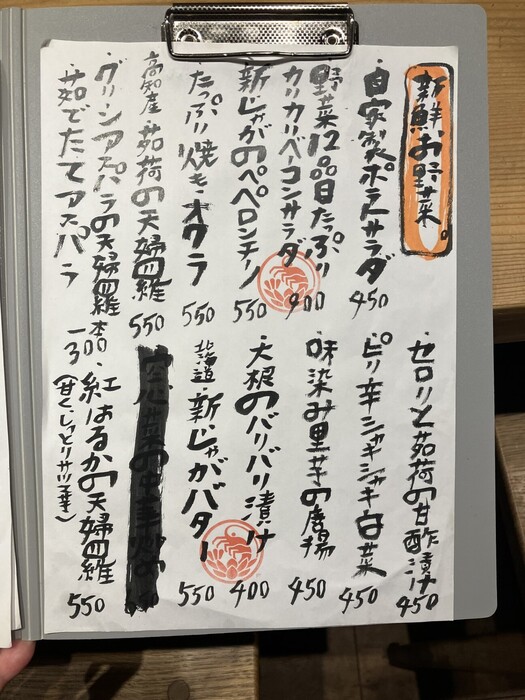 新鮮お野菜。
・自家製ポテトサラダ 450
・野菜12品目たっぷり
カリカリベーコンサラダ 900
・新じゃがのペペロンチーノ 550
・たっぷり焼きオクラ 550
高知産・茹荷の天婦羅 550
・グリーンアスパラの天婦羅
・茹でたてアスパラ
一本 300
・セロリと茹荷の甘酢漬け 450
・ピリ辛シャキシャキ白菜 450
・味染み里芋の唐揚 450
・大根のバリバリ漬け 400
北海道・新じゃがバター 550
・紅はるかの天婦羅 550
(甘くしっとりサツマ芋)